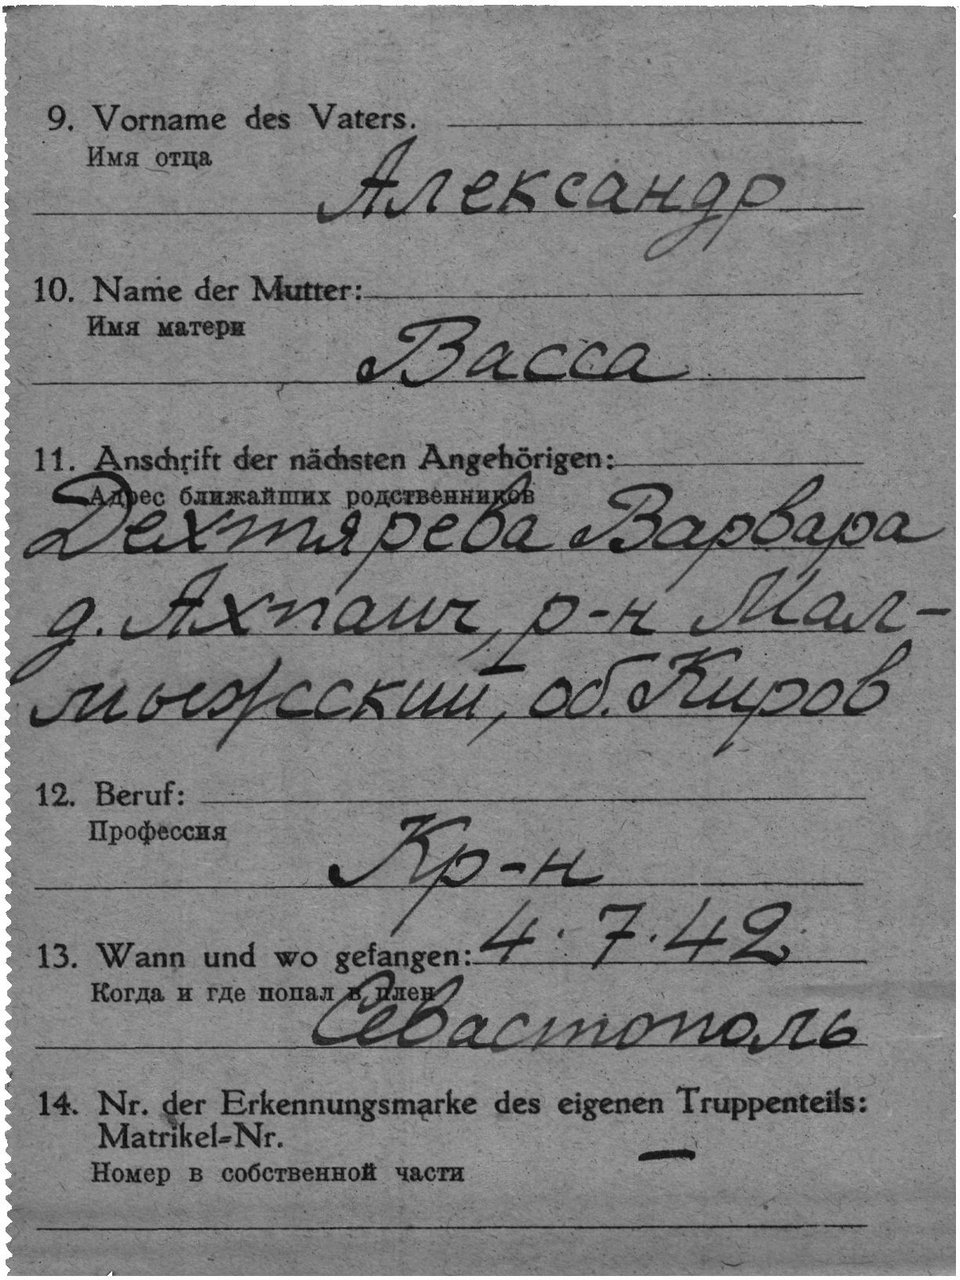 9. Vorname des Vaters.
Имя отца
Александр
10. Name der Mutter:
Имя матери
Васса
11. Anschrift der nächsten Angehörigen:
Адрес ближайших родственников
Дехтярева Варвара
д. Ахпаич, р-н Мал-
мыжсский, об. Киров
12. Beruf:
Профессия
Кр-н
13. Wann und wo gefangen: 4.7.42
Когда и где попал в плен
Севастополь
14. Nr. der Erkennungsmarke des eigenen Truppenteils:
Matrikel=Nr. —
Номер в собственной части